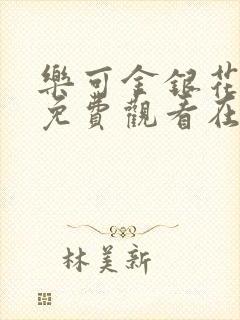 樂可金銀花
免費觀看在
林美新